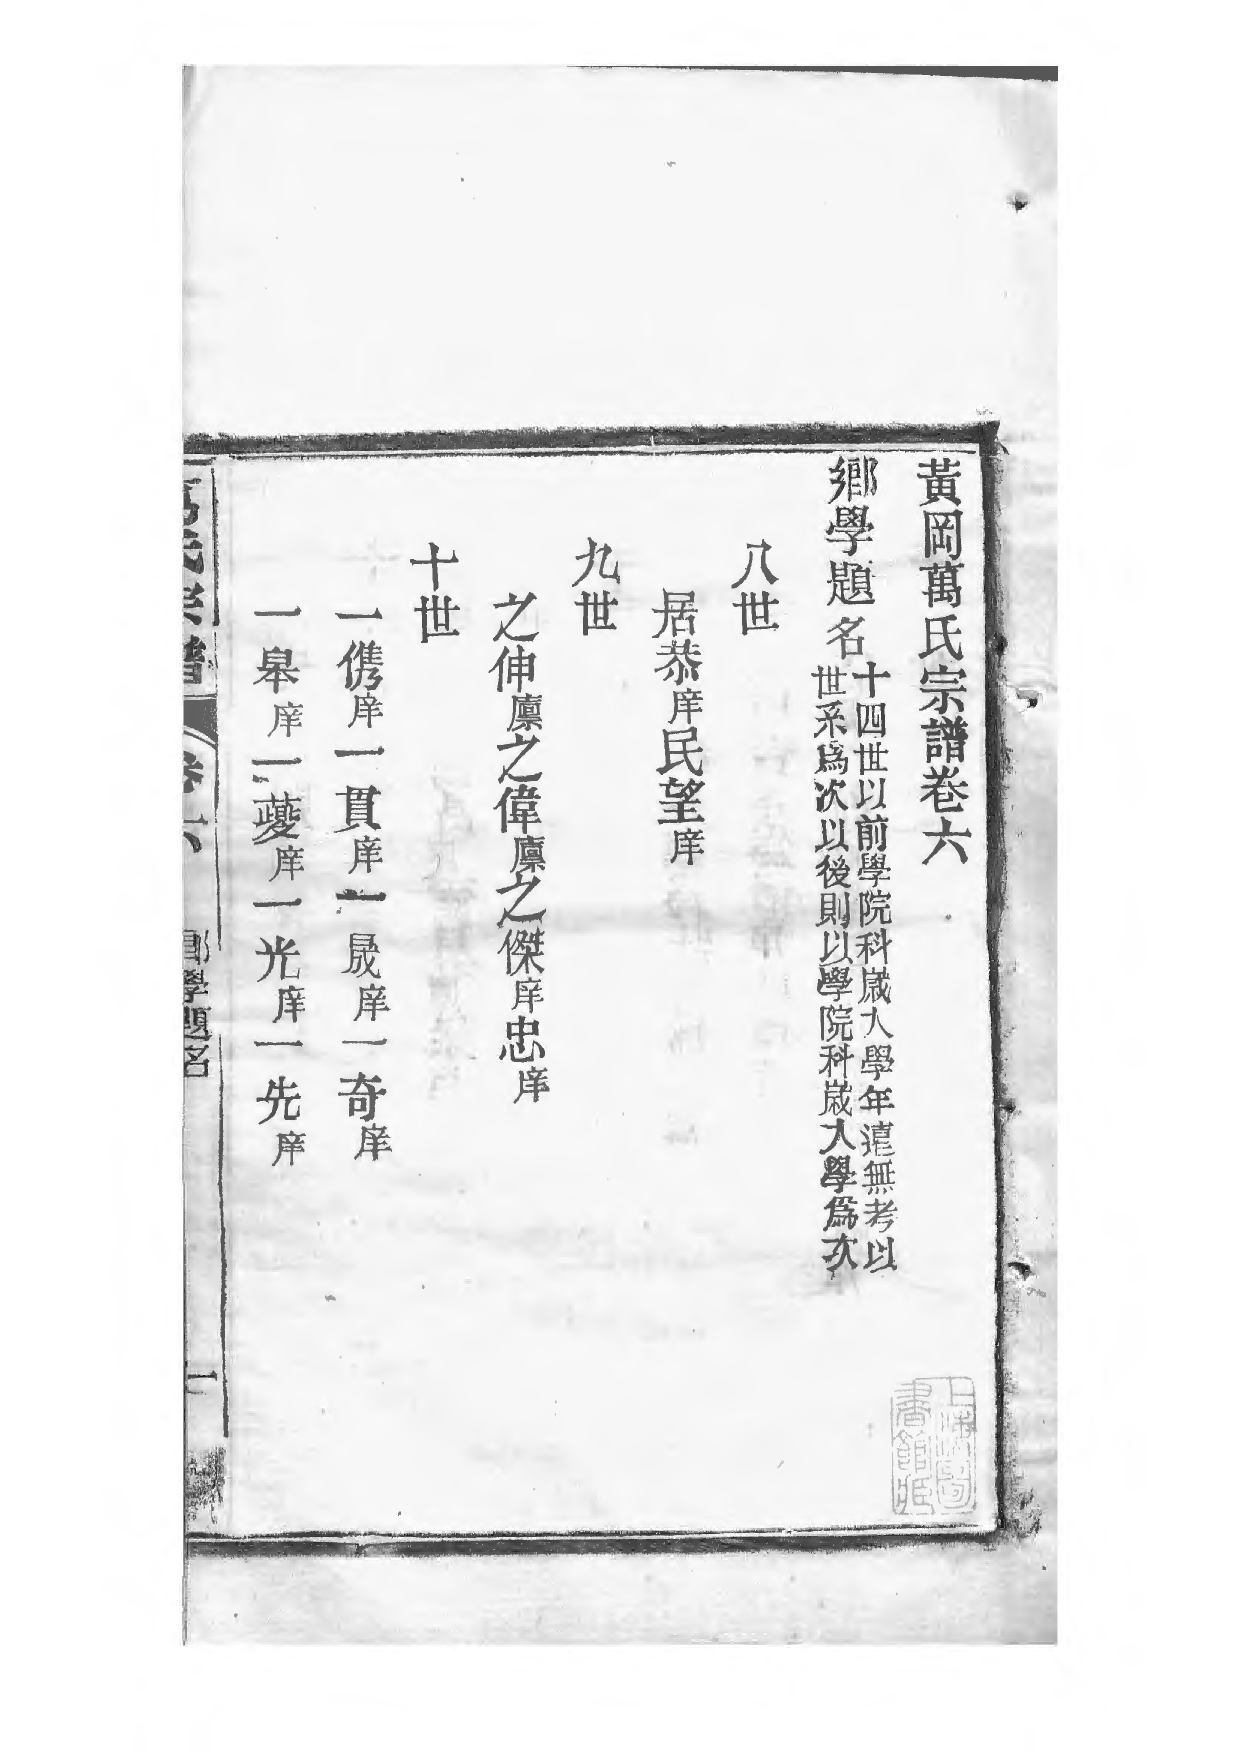 黃岡萬氏宗譜卷六
鄉學題名 十四世以前學院科歲入學年遠無考以
世系爲次以後則以學院科歲入學爲次
八世
居恭庠民望庠
九世
之伸廩之偉廩之傑庠忠庠
十世
一儁庠一貫庠一晟庠一奇庠
一皋庠一夔庠一光庠一先庠
萬氏宗譜 卷六 鄉學題名 一
上海圖書館藏